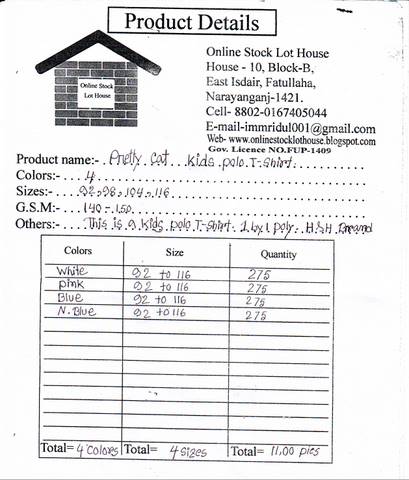 Product Details
Online Stock
Lot House
Online Stock Lot House
House - 10, Block-B,
East Isdair, Fatullaha,
Narayanganj-1421.
Cell- 8802-0167405044
E-mail-immridul001@gmail.com
Web- www.onlinestocklothouse.blogspot.com
Gov. Licence NO.FUP-1409
Product name:- Pretty Cat Kids Polo T-Shirt.
Colors:- 4
Sizes:- 92-98-104-116
G.S.M:- 140-150
Others:- This is a kids polo T-Shirt. 1 by 1 poly. H&H
Colors Size Quantity
White 92 to 116 275
pink 92 to 116 275
Blue 92 to 116 275
N.Blue 92 to 116 275
Total= 4 Colors Total= 4 Sizes Total= 11,00 pies